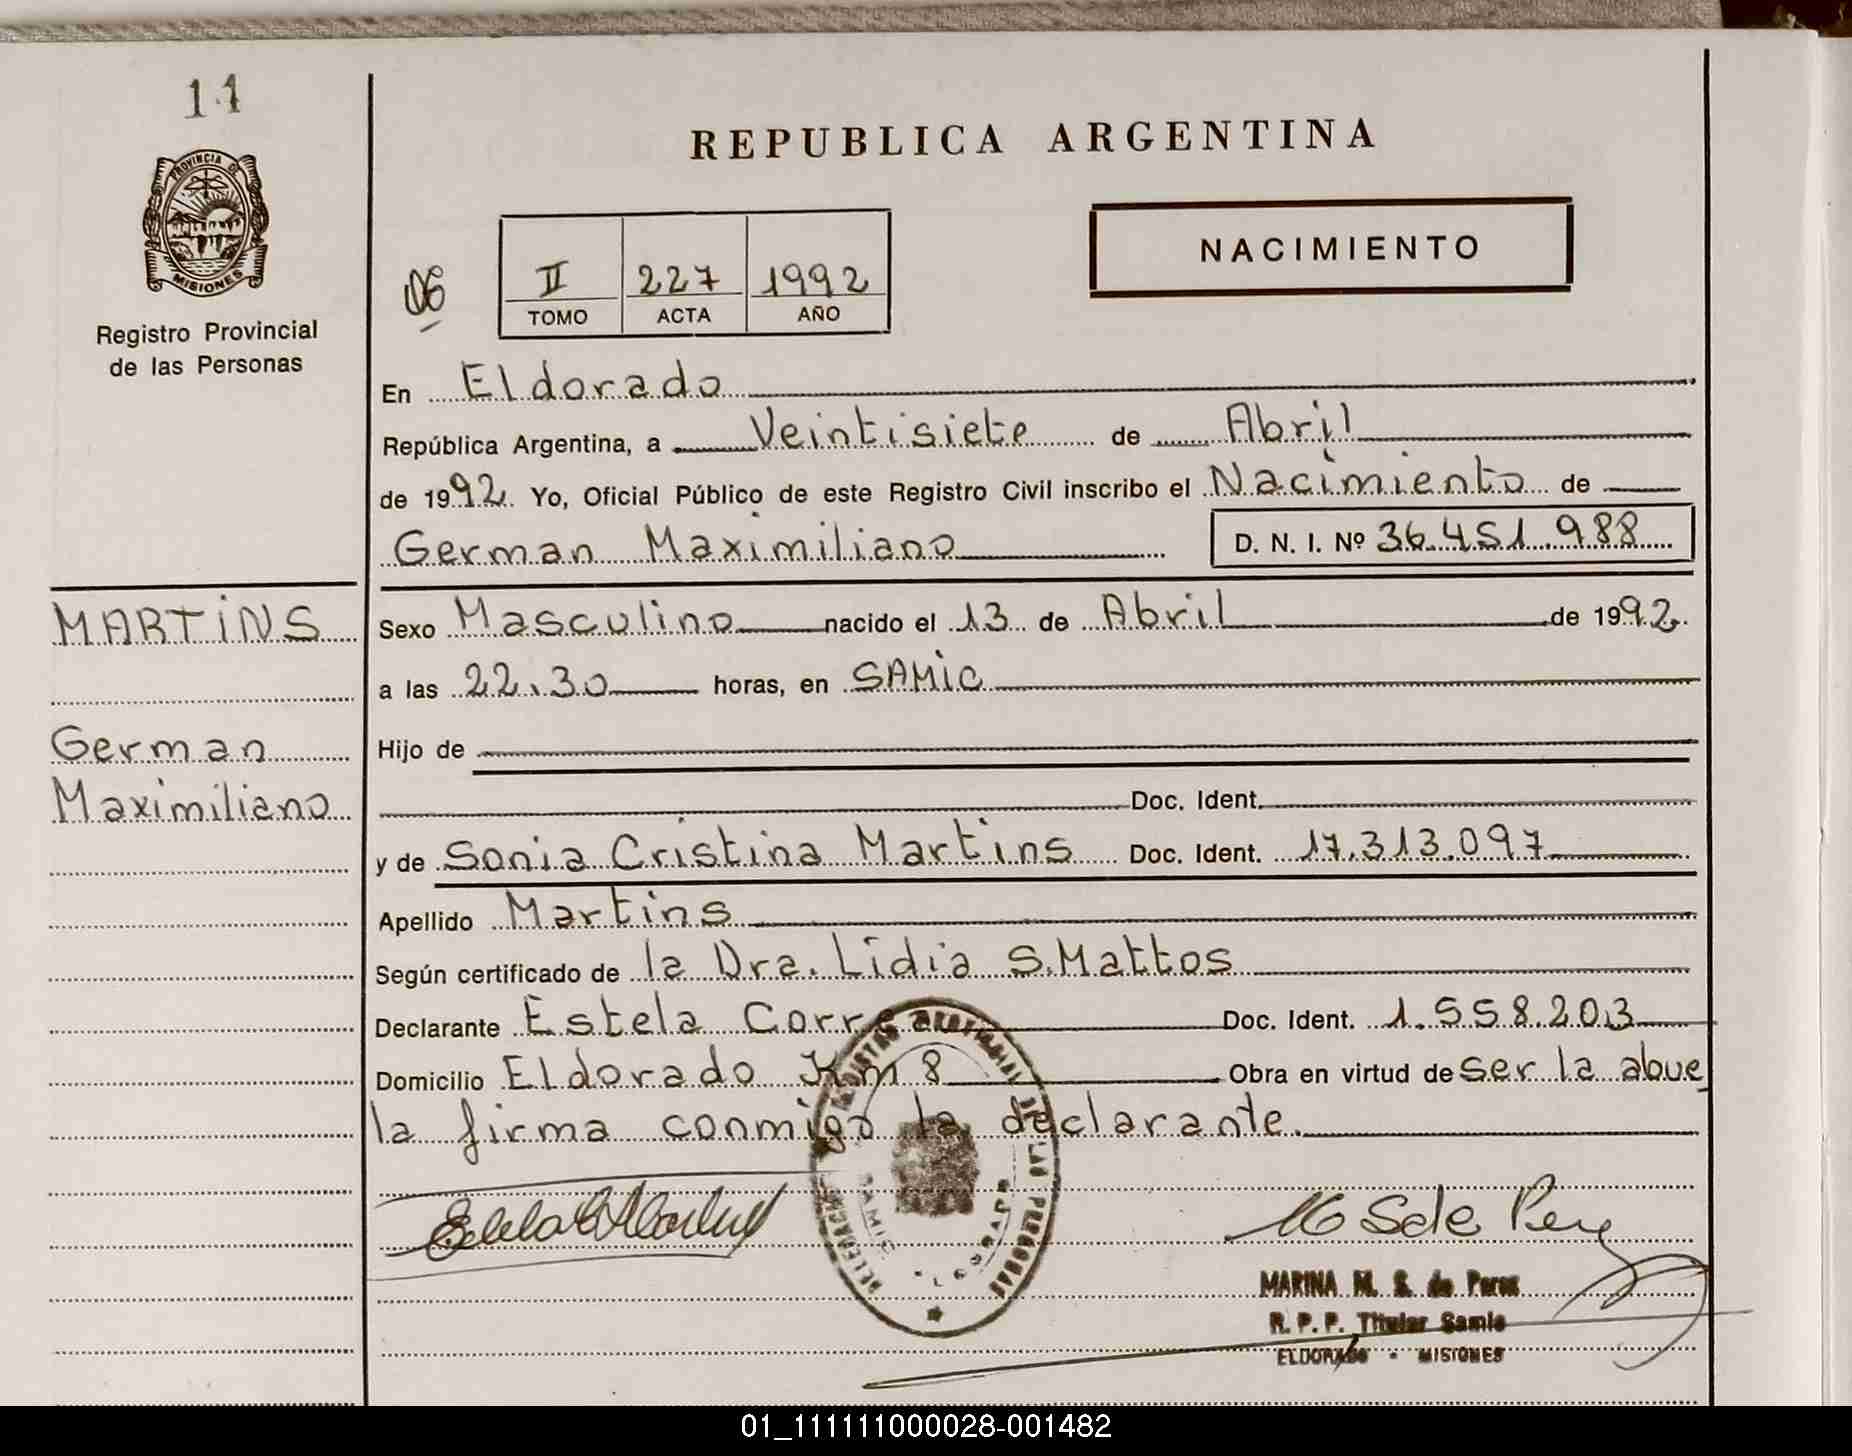 11
PROVINCIA DE
MISIONES
Registro Provincial
de las Personas
REPUBLICA ARGENTINA
NACIMIENTO
06
II 227 1992
TOMO ACTA AÑO
En Eldorado
República Argentina, a Veintisiete de Abril
de 1992. Yo, Oficial Público de este Registro Civil inscribo el Nacimiento de
German Maximiliano D. N. I. Nº 36.451.988
MARTINS
German
Maximiliano
Sexo Masculino nacido el 13 de Abril de 1992.
a las 22.30 horas, en SAMIC
Hijo de
Doc. Ident.
y de Sonia Cristina Martins Doc. Ident. 17.313.097
Apellido Martins
Según certificado de la Dra. Lidia S. Mattos
Declarante Estela Correa Doc. Ident. 1.558.203
Domicilio Eldorado Km 8 Obra en virtud de ser la abue
la firma conmigo la declarante.
MARINA M. S. de Perez
R. P. P. Titular Samic
ELDORADO - MISIONES
01_111111000028-001482